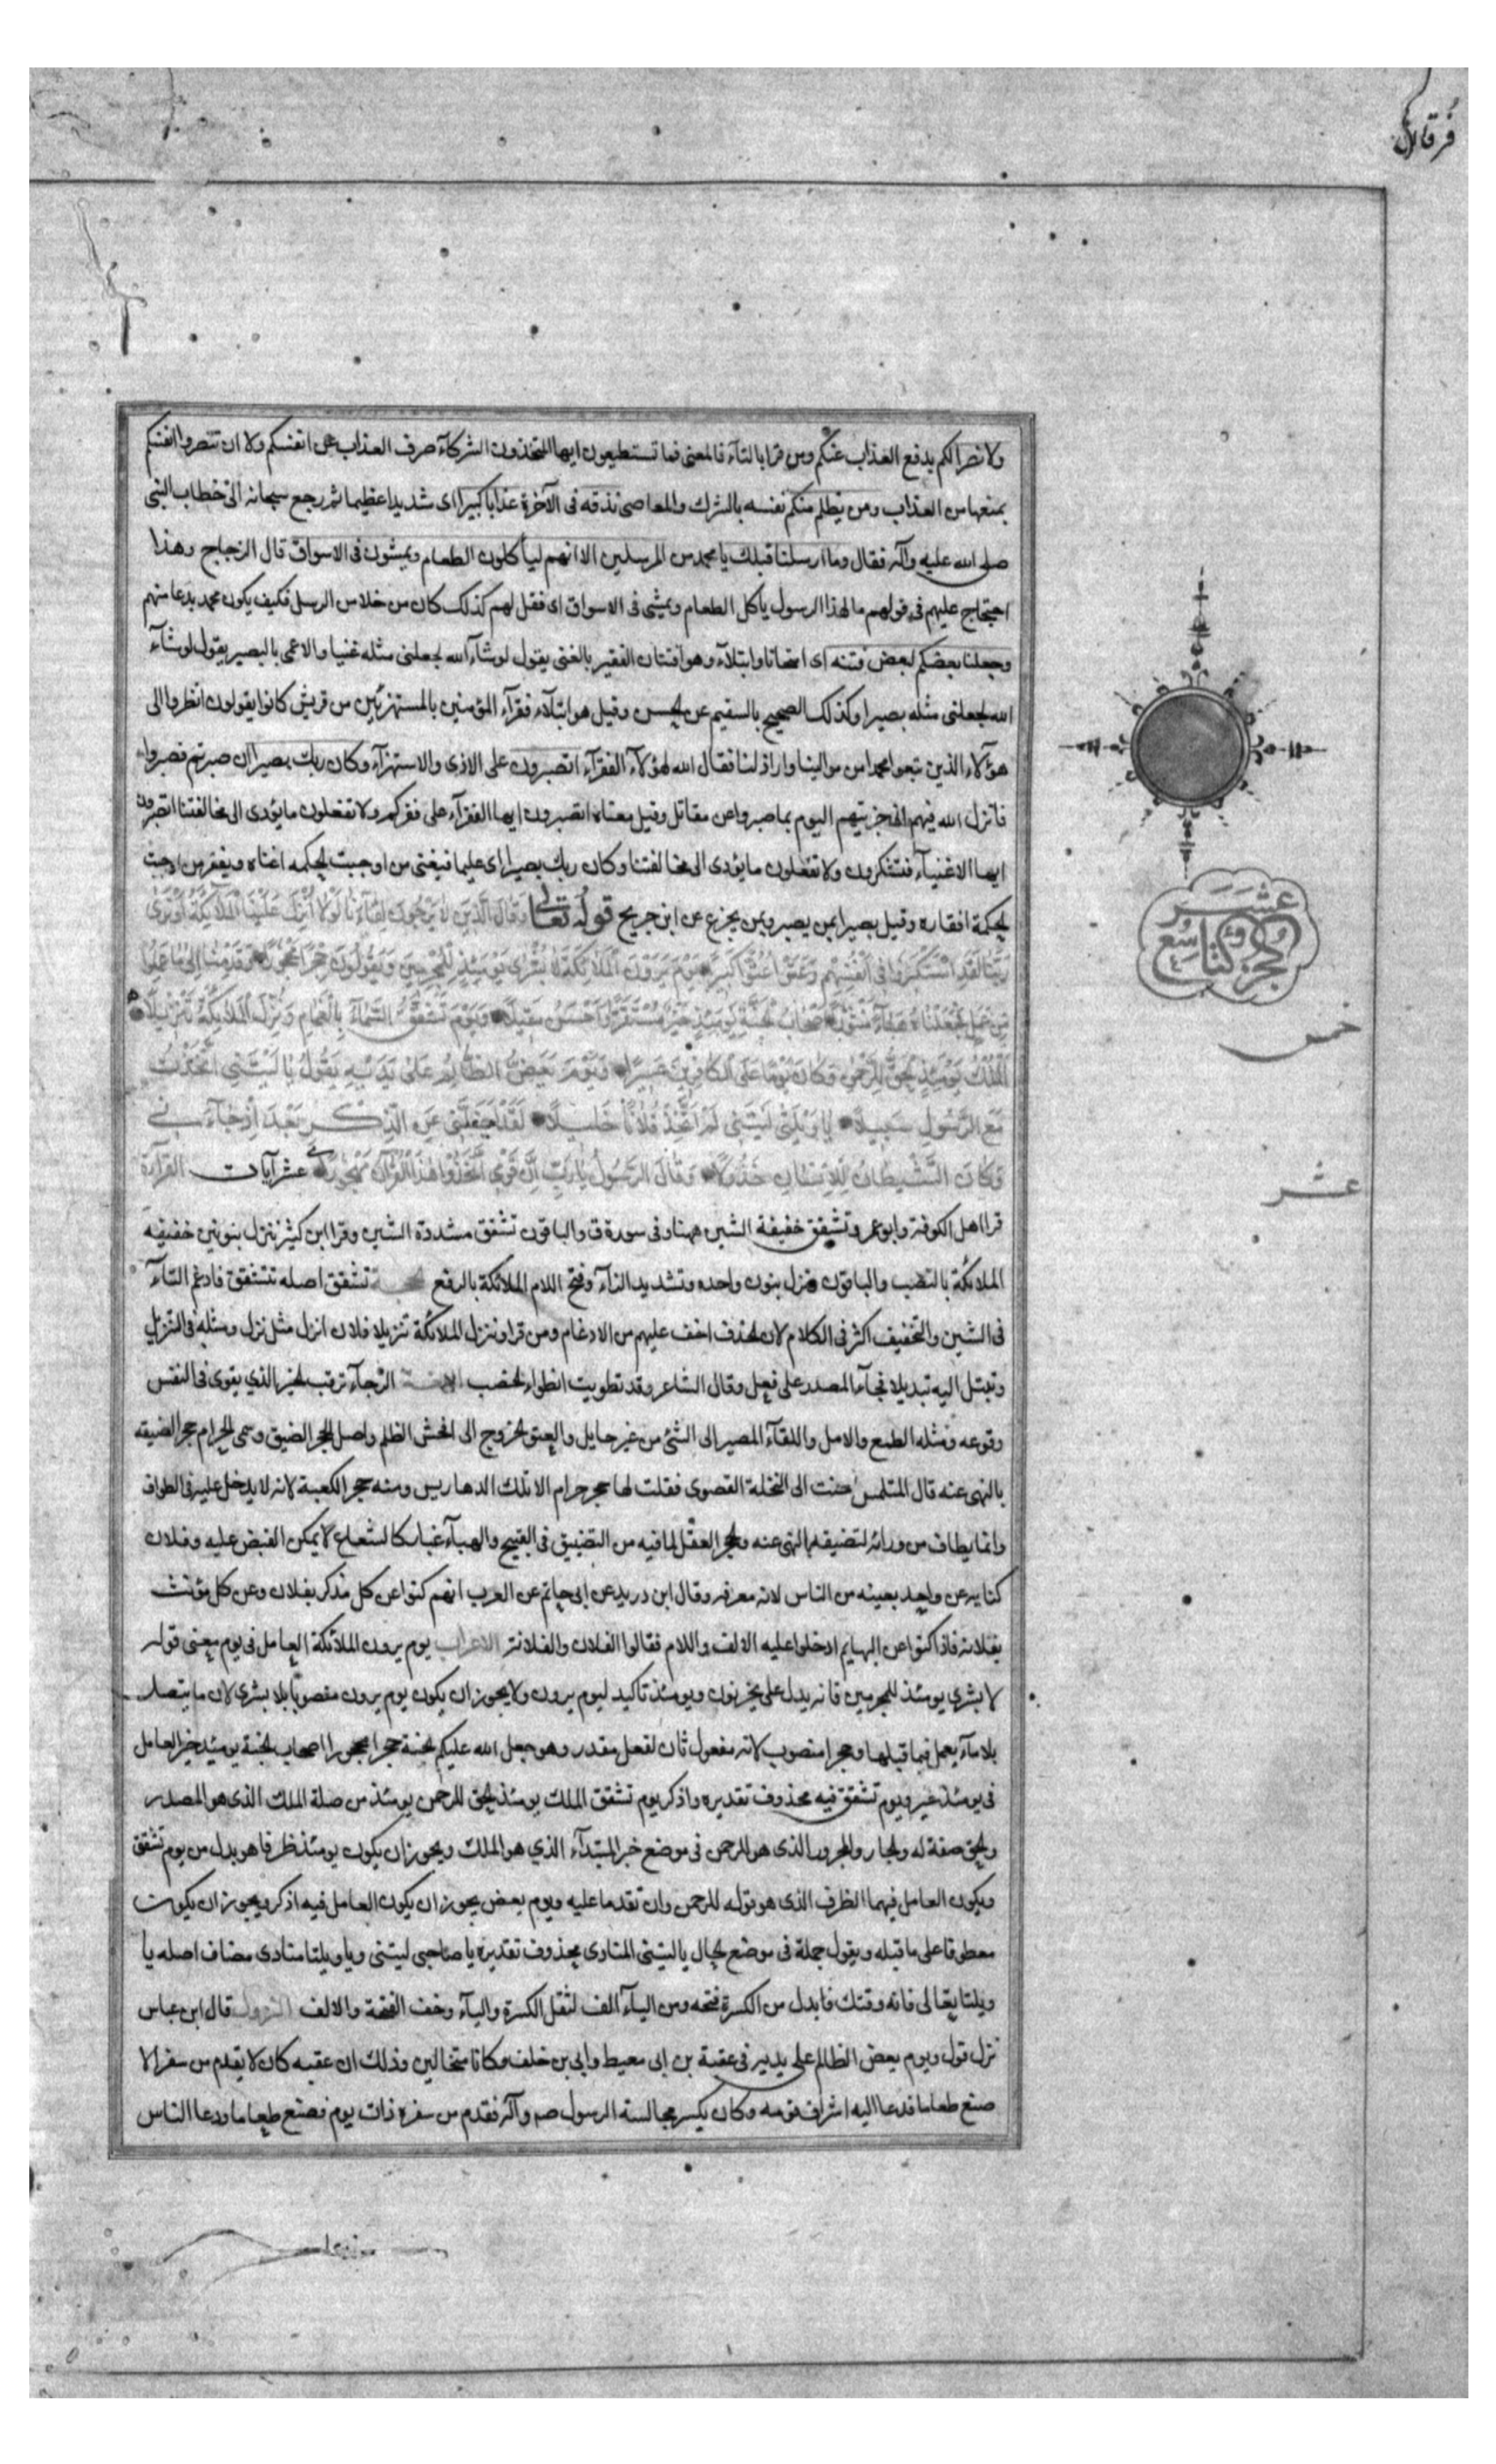 فرقان
ولا نصرا لكم بدفع العذاب عنكم ومن قرا بالتاء فالمعنى فما تستطيعون ايها المتخذون الشركاء صرف العذاب عن انفسكم ولا ان تنصروا انفسكم
بمنعها من العذاب ومن يظلم منكم نفسه بالشرك والمعاصى نذقه فى الآخرة عذابا كبيرا اى شديدا عظيما ثم رجع سبحانه الى خطاب النبى
صلى الله عليه وآله فقال وما ارسلنا قبلك يا محمد من المرسلين الا انهم ليأكلون الطعام ويمشون فى الاسواق قال الزجاج وهذا
احتجاج عليهم فى قولهم ما لهذا الرسول يأكل الطعام ويمشى فى الاسواق اى فقل لهم كذلك كان من خلا من الرسل فكيف يكون محمد بدعا منهم
وجعلنا بعضكم لبعض فتنه اى امتحانا وابتلاء وهو افتتان الفقير بالغنى يقول لو شاء الله لجعلنى مثله غنيا والاعمى بالبصير يقول لو شاء
الله لجعلنى مثله بصيرا وكذلك الصحيح بالسقيم عن الحسن وقيل هو ابتلاء فقراء المؤمنين بالمستهزئين من قريش كانوا يقولون انظروا الى
هؤلاء الذين تبعوا محمدا من موالينا واراذلنا فقال الله لهؤلاء الفقراء اتصبرون على الاذى والاستهزاء وكان ربك بصيرا ان صبرتم فصبروا
فانزل الله فيهم انى جزيتهم اليوم بما صبروا عن مقاتل وقيل معناه اتصبرون ايها الفقراء على فقركم ولا تفعلون ما يؤدى الى مخالفتنا اتصبرون
ايها الاغنياء فتشكرون ولا تفعلون ما يؤدى الى مخالفتنا وكان ربك بصيرا اى عليما فيغنى من اوجبت الحكمه اغناه ويفقر من اوجبت
الحكمة افقاره وقيل بصيرا بمن يصبر وبمن يجزع عن ابن جريج قوله تعالى وقال الذين لا يرجون لقاءنا لولا انزل علينا الملائكة او نرى
ربنا لقد استكبروا فى انفسهم وعتوا عتوا كبيرا يوم يرون الملائكة لا بشرى يومئذ للمجرمين ويقولون حجرا محجورا وقدمنا الى ما عملوا
من عمل فجعلناه هباء منثورا اصحاب الجنة يومئذ خير مستقرا واحسن مقيلا ويوم تشقق السماء بالغمام ونزل الملائكة تنزيلا
الملك يومئذ الحق للرحمن وكان يوما على الكافرين عسيرا ويوم يعض الظالم على يديه يقول يا ليتنى اتخذت
مع الرسول سبيلا يا ويلتى ليتنى لم اتخذ فلانا خليلا لقد اضلنى عن الذكر بعد اذ جاءنى
وكان الشيطان للانسان خذولا وقال الرسول يا رب ان قومى اتخذوا هذا القرآن مهجورا عشر آيات القراءة
قرا اهل الكوفة وابو عمرو تشقق خفيفة الشين ههنا وفى سورة ق والباقون تشقق مشددة الشين وقرا ابن كثير ننزل بنونين خفيفه
الملائكة بالنصب والباقون ونزل بنون واحده وتشديد الزاء وفتح اللام الملائكة بالرفع تشقق اصله تتشقق فادغم التاء
فى الشين والتخفيف اكثر فى الكلام لان الحذف اخف عليهم من الادغام ومن قرا وننزل الملائكة تنزيلا فلان انزل مثل نزل ومثله فى التنزيل
وتبتل اليه تبديلا فجاء المصدر على فعل وقال الشاعر وقد تطويت انطواء الحضب الرجاء ترقب الخير الذي يقوى فى النفس
وقوعه ومثله الطمع والامل واللقاء المصير الى الشئ من غير حايل والعتو الخروج الى افحش الظلم واصل الحجر الضيق وسمى الحرام حجرا لضيقه
بالنهى عنه قال المتلمس حنت الى النخلة القصوى فقلت لها حجر حرام الا تلك الدهاريس ومنه حجر الكعبة لانه لا يدخل عليه فى الطواف
وانما يطاف من ورائه لتضيقه بالنهى عنه والحجر العقل لما فيه من التضييق فى القبيح والهباء غبار كالشعاع لا يمكن القبض عليه وفلان
كنايه عن واحد بعينه من الناس لانه معرفه وقال ابن دريد عن ابى حاتم عن العرب انهم كنوا عن كل مذكر بفلان وعن كل مؤنث
بفلانه فاذا كنوا عن البهايم ادخلوا عليه الالف واللام فقالوا الفلان والفلانة الاعراب يوم يرون الملائكة العامل فى يوم معنى قوله
لا بشرى يومئذ للمجرمين فانه يدل على يحزنون ويومئذ تاكيد ليوم يرون ولا يجوز ان يكون يوم يرون منصوبا بلا بشرى لان ما يتصل
بلا ما لا يعمل فيما قبلها وحجرا منصوب لانه مفعول ثان لفعل مقدر وهو جعل الله عليكم الجنة حجرا محجورا اصحاب الجنة يومئذ خير العامل
فى يومئذ خير ويوم تشقق فيه محذوف تقديره واذكر يوم تشقق الملك يومئذ الحق للرحمن يومئذ من صلة الملك الذى هو المصدر
والحق صفة له والجار والمجرور الذى هو للرحمن فى موضع خبر المبتداء الذي هو الملك ويجوز ان يكون يومئذ ظرفا هو بدل من يوم تشقق
ويكون العامل فيهما الظرف الذى هو قوله للرحمن وان تقدما عليه ويوم يعض يجوز ان يكون العامل فيه اذكر ويجوز ان يكون
معطوفا على ما قبله ويقول جملة فى موضع الحال يا ليتنى المنادى محذوف تقديره يا صاحبى ليتنى ويا ويلتا منادى مضاف اصله يا
ويلتا تعالى فانه وقتك فابدل من الكسرة فتحه ومن الياء الف لثقل الكسرة والياء وخف الفتحة والالف النزول قال ابن عباس
نزل قوله ويوم يعض الظالم على يديه فى عقبة بن ابى معيط وابى بن خلف وكانا متخالين وذلك ان عقبه كان لا يقدم من سفر الا
صنع طعاما فدعا اليه اشراف قومه وكان يكثر مجالسة الرسول صم وآله فقدم من سفره ذات يوم فصنع طعاما ودعا الناس
عشر
خمس
عشر